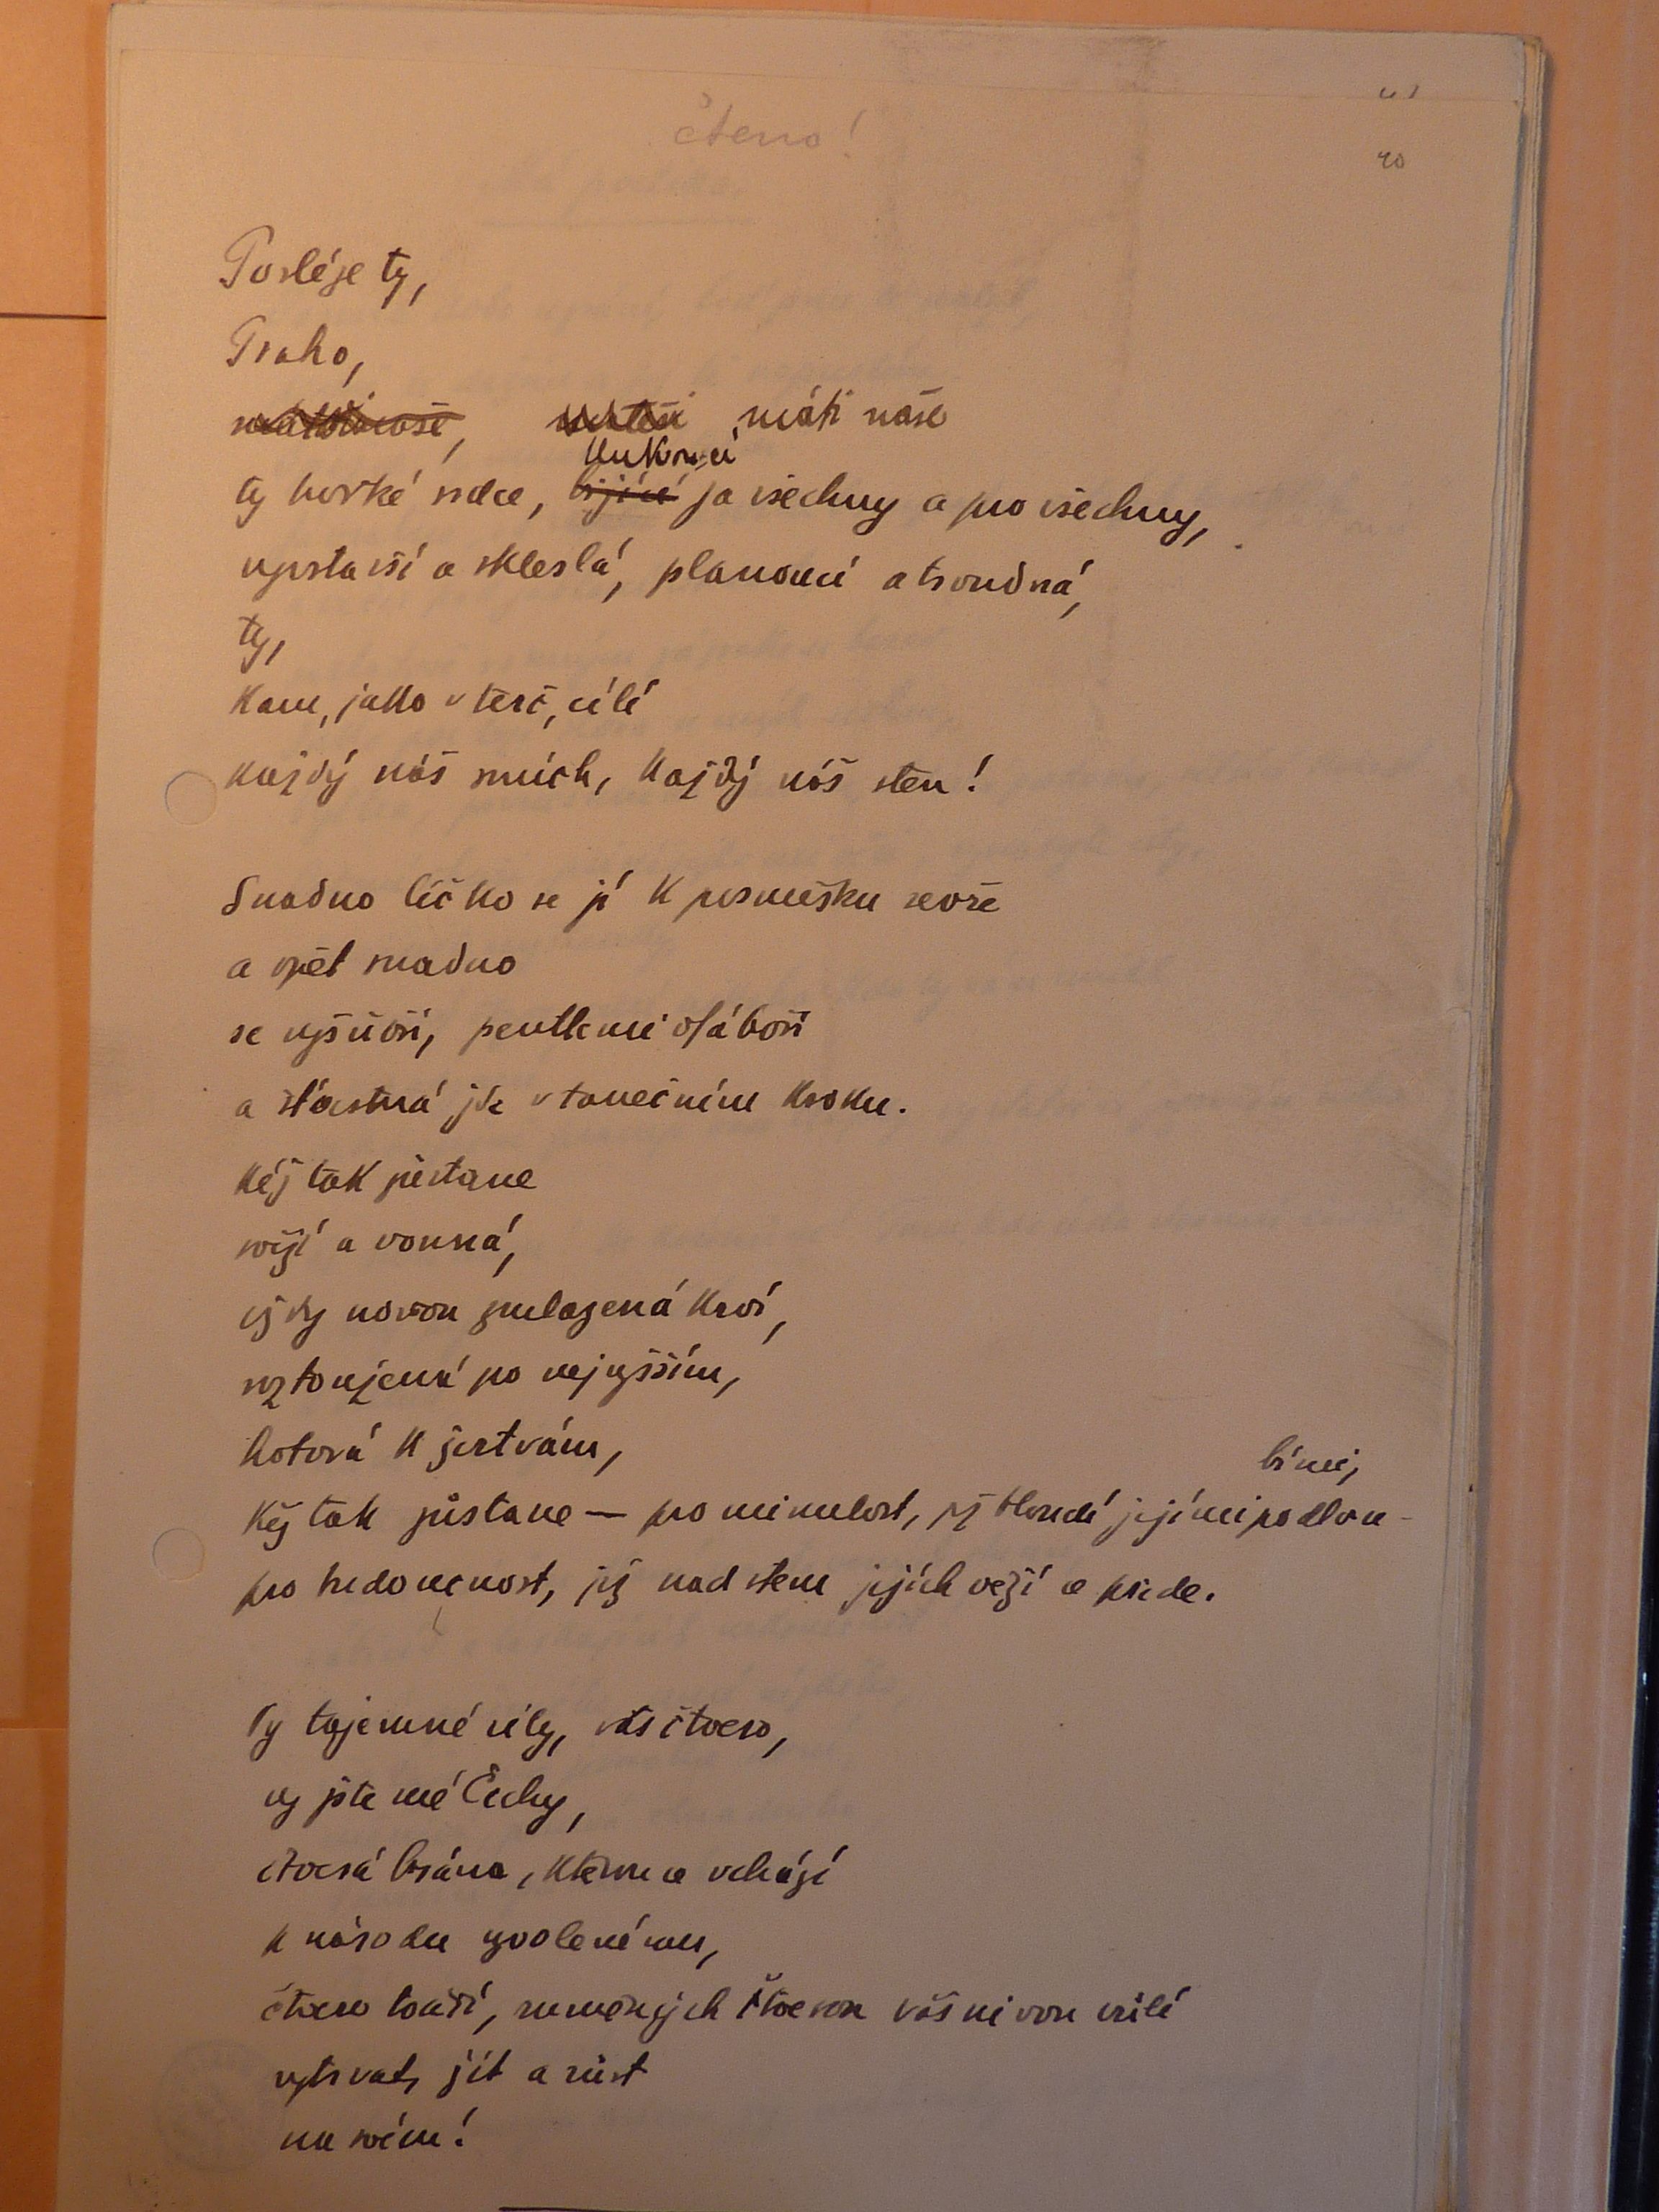 čteno!
40
Posléze ty,
Praho,
máti naše
tlukoucí
ty horké srdce, bijící za všechny a pro všechny,
vyvstavší a skleslá, planoucí a trudná,
ty,
kam, jako v terč, cílí
každý náš smích, každý náš sten!
Snadno líčko se jí k posměšku sevře
a opět snadno
se vyšňoří, pentlemi ofáboří
a šťastná jde v tanečním kroku.
Kéž tak zůstane
svěží a vonná,
vždy novou zmlazená krví,
roztoužená po nejvyšším,
hotová k žertvám,
bími,
kéž tak zůstane — pro minulost, jež bloudí jejími podlou-
pro budoucnost, jež nad stem jejích věží se přede.
Vy tajemné síly, vás čtvero,
vy jste mé Čechy,
čtverá brána, kterou se vchází
k národu zvolenému,
čtvero touží, ruměných čtverou vášnivou vůlí
vytrvat, jít a růst
na svém!